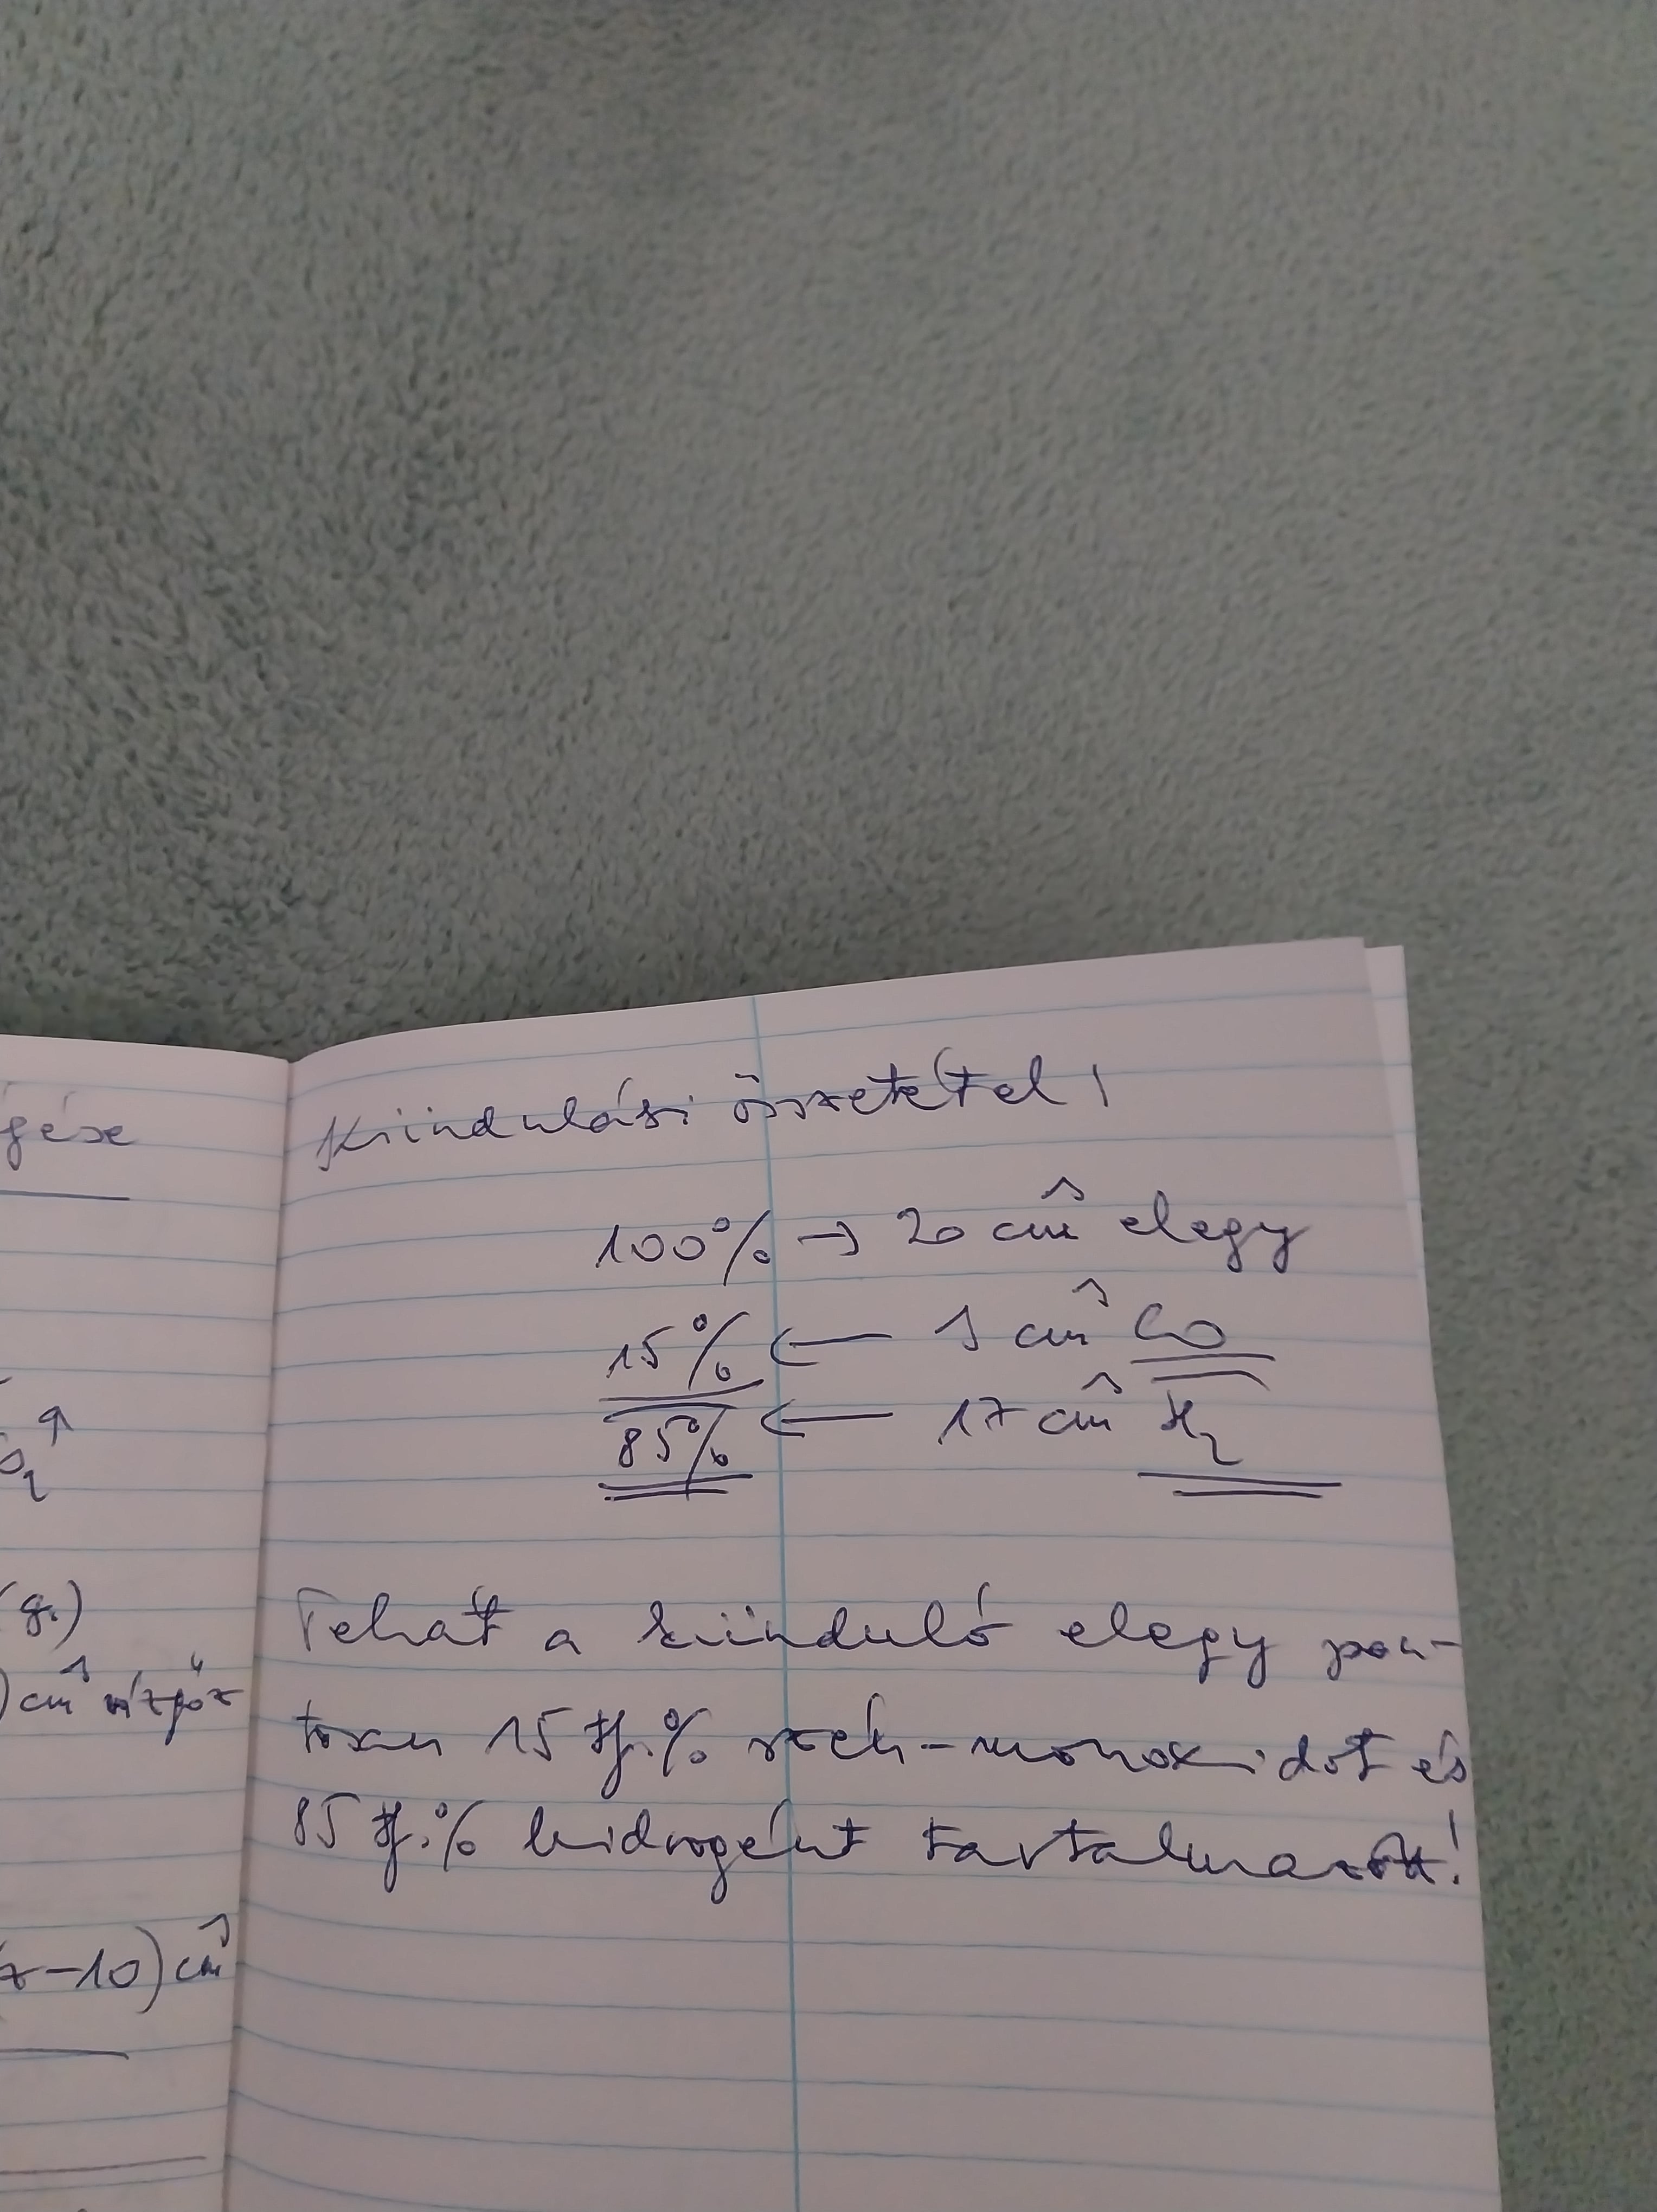 gése
O₂ ↑
(g.)
) cm³ vízgőz
x-10) cm³
Kiindulási összetétel!
100% → 20 cm³ elegy
15% ← 3 cm³ CO
85% ← 17 cm³ H₂
Tehát a kiinduló elegy pon-
tosan 15 tf.% szén-monoxidot és
85 tf.% hidrogént tartalmazott!